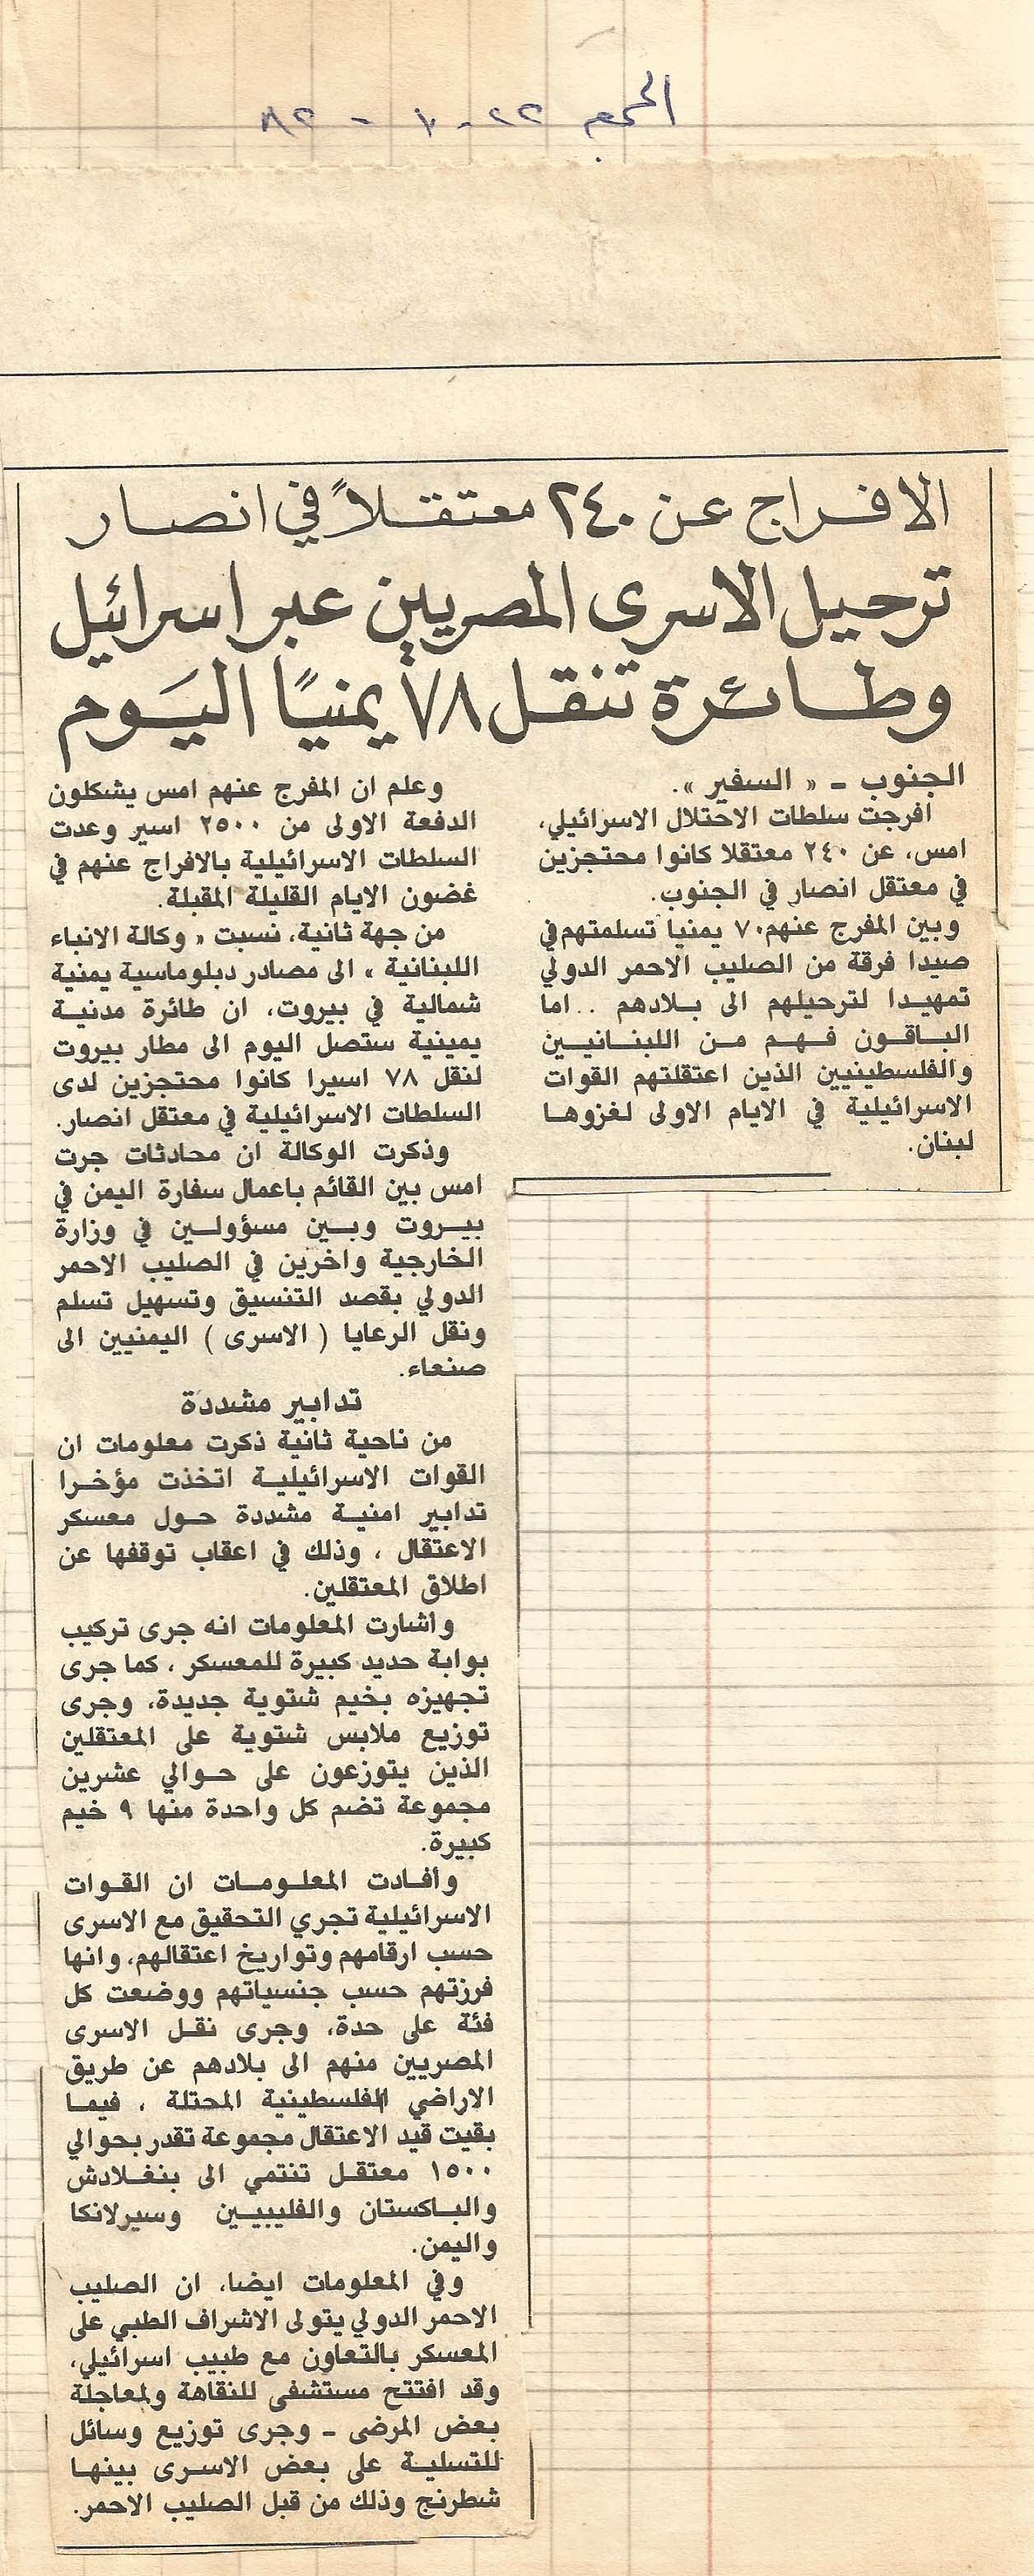 ٢٢ - ١٠ - ٨٢
الافراج عن ٢٤٠ معتقلاً في انصار
ترحيل الاسرى المصريين عبر اسرائيل
وطائرة تنقل ٧٨ يمنيًا اليَوم
الجنوب ـ « السفير ».
افرجت سلطات الاحتلال الاسرائيلي،
امس، عن ٢٤٠ معتقلا كانوا محتجزين
في معتقل انصار في الجنوب.
وبين المفرج عنهم ٧٠ يمنيا تسلمتهم في
صيدا فرقة من الصليب الاحمر الدولي
تمهيدا لترحيلهم الى بلادهم .. اما
الباقون فهم من اللبنانيين
والفلسطينيين الذين اعتقلتهم القوات
الاسرائيلية في الايام الاولى لغزوها
لبنان.
وعلم ان المفرج عنهم امس يشكلون
الدفعة الاولى من ٢٥٠٠ اسير وعدت
السلطات الاسرائيلية بالافراج عنهم في
غضون الايام القليلة المقبلة.
من جهة ثانية، نسبت « وكالة الانباء
اللبنانية » الى مصادر دبلوماسية يمنية
شمالية في بيروت، ان طائرة مدنية
يمينية ستصل اليوم الى مطار بيروت
لنقل ٧٨ اسيرا كانوا محتجزين لدى
السلطات الاسرائيلية في معتقل انصار.
وذكرت الوكالة ان محادثات جرت
امس بين القائم باعمال سفارة اليمن في
بيروت وبين مسؤولين في وزارة
الخارجية واخرين في الصليب الاحمر
الدولي بقصد التنسيق وتسهيل تسلم
ونقل الرعايا ( الاسرى ) اليمنيين الى
صنعاء.
تدابير مشددة
من ناحية ثانية ذكرت معلومات ان
القوات الاسرائيلية اتخذت مؤخرا
تدابير امنية مشددة حول معسكر
الاعتقال ، وذلك في اعقاب توقفها عن
اطلاق المعتقلين.
وأشارت المعلومات انه جرى تركيب
بوابة حديد كبيرة للمعسكر ، كما جرى
تجهيزه بخيم شتوية جديدة، وجرى
توزيع ملابس شتوية على المعتقلين
الذين يتوزعون على حوالي عشرين
مجموعة تضم كل واحدة منها ٩ خيم
كبيرة.
وأفادت المعلومات ان القوات
الاسرائيلية تجري التحقيق مع الاسرى
حسب ارقامهم وتواريخ اعتقالهم، وانها
فرزتهم حسب جنسياتهم ووضعت كل
فئة على حدة، وجرى نقل الاسرى
المصريين منهم الى بلادهم عن طريق
الاراضي الفلسطينية المحتلة ، فيما
بقيت قيد الاعتقال مجموعة تقدر بحوالي
١٥٠٠ معتقل تنتمي الى بنغلادش
والباكستان والفليبيين وسيرلانكا
واليمن.
وفي المعلومات ايضا، ان الصليب
الاحمر الدولي يتولى الاشراف الطبي على
المعسكر بالتعاون مع طبيب اسرائيلي،
وقد افتتح مستشفى للنقاهة ولمعاجلة
بعض المرضى ـ وجرى توزيع وسائل
للتسلية على بعض الاسرى بينها
شطرنج وذلك من قبل الصليب الاحمر.